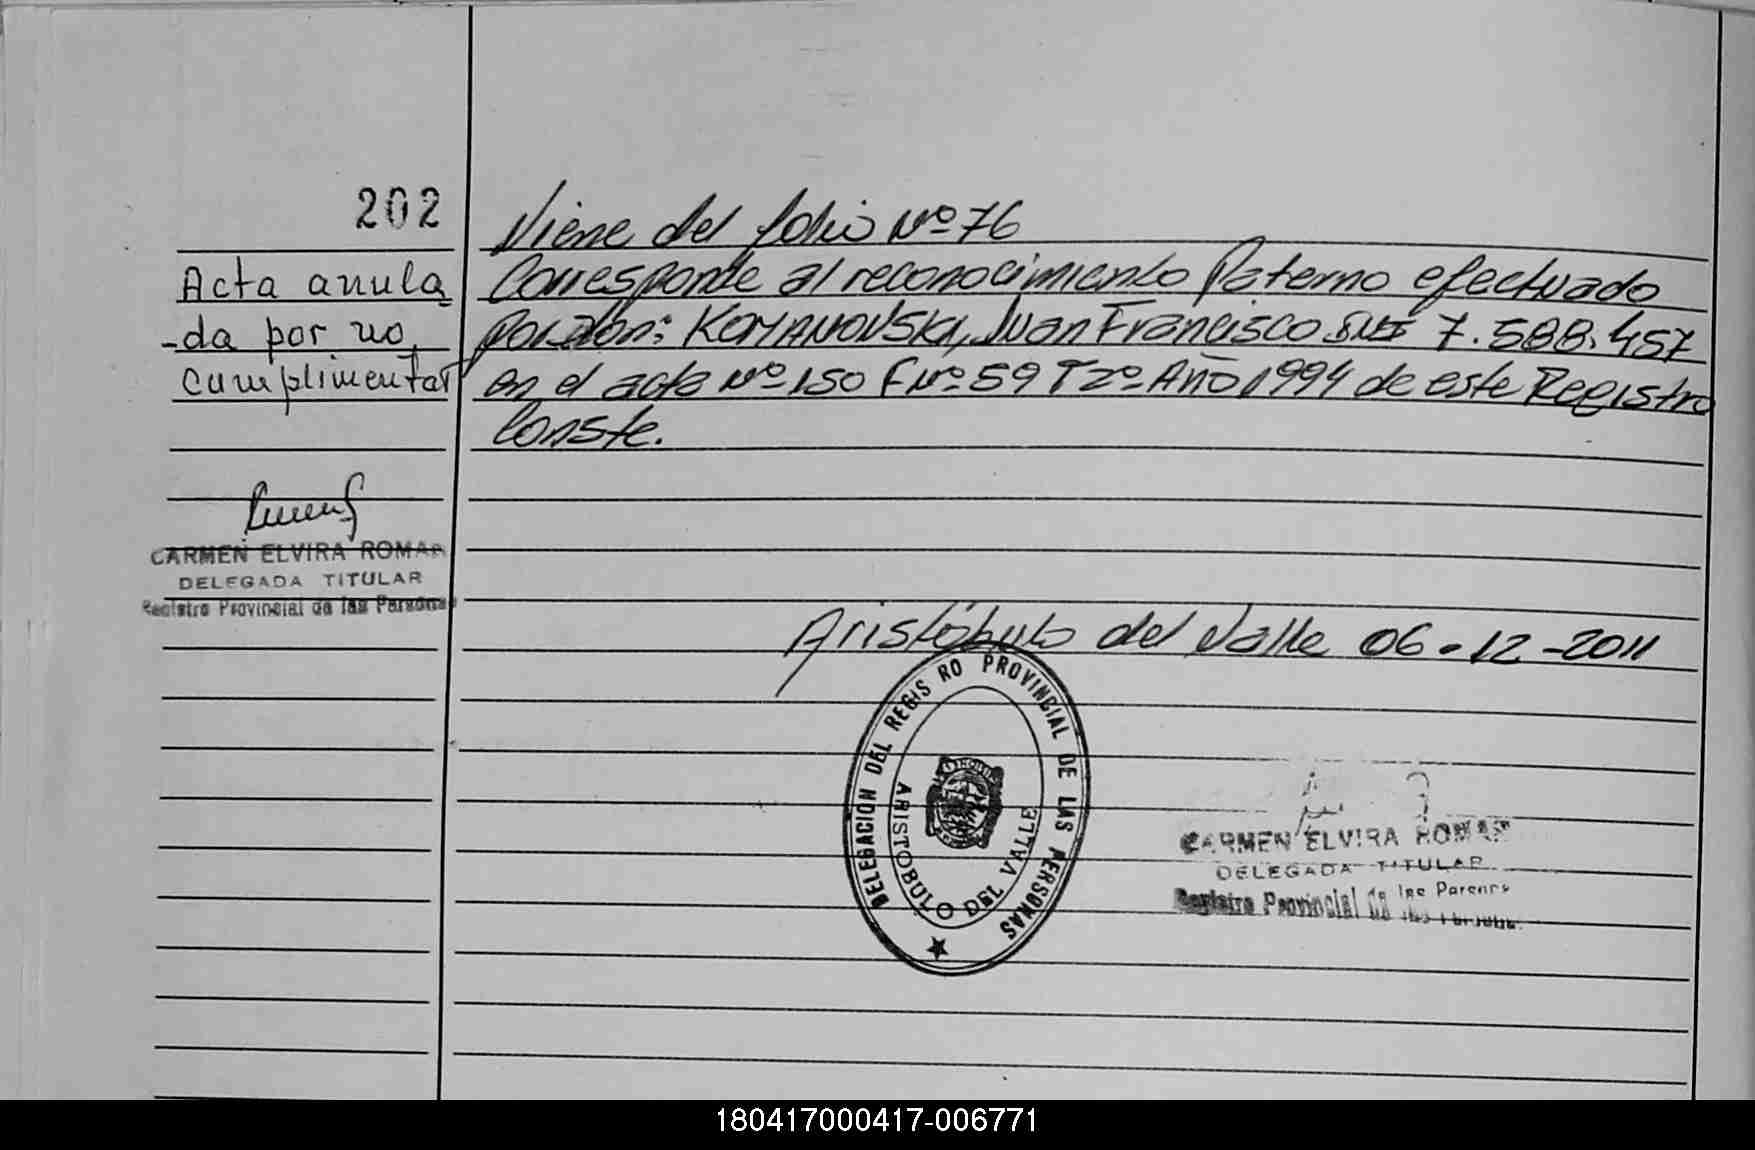 202
Acta anula
-da por no
cumplimentar
CARMEN ELVIRA ROMAN
DELEGADA TITULAR
Registro Provincial de las Personas
Viene del folio Nº 76
Corresponde al reconocimiento Paterno efectuado
por don: KOMANOVSKI, Juan Francisco 7.588.457
en el acta Nº 150 Fº Nº 59 T 2º Año 1994 de este Registro
Conste.
Aristóbulo del Valle 06-12-2011
DELEGACION DEL REGIS RO PROVINCIAL DE LAS PERSONAS
ARISTOBULO DEL VALLE
CARMEN ELVIRA ROMAN
DELEGADA TITULAR
Registro Provincial de las Personas
180417000417-006771